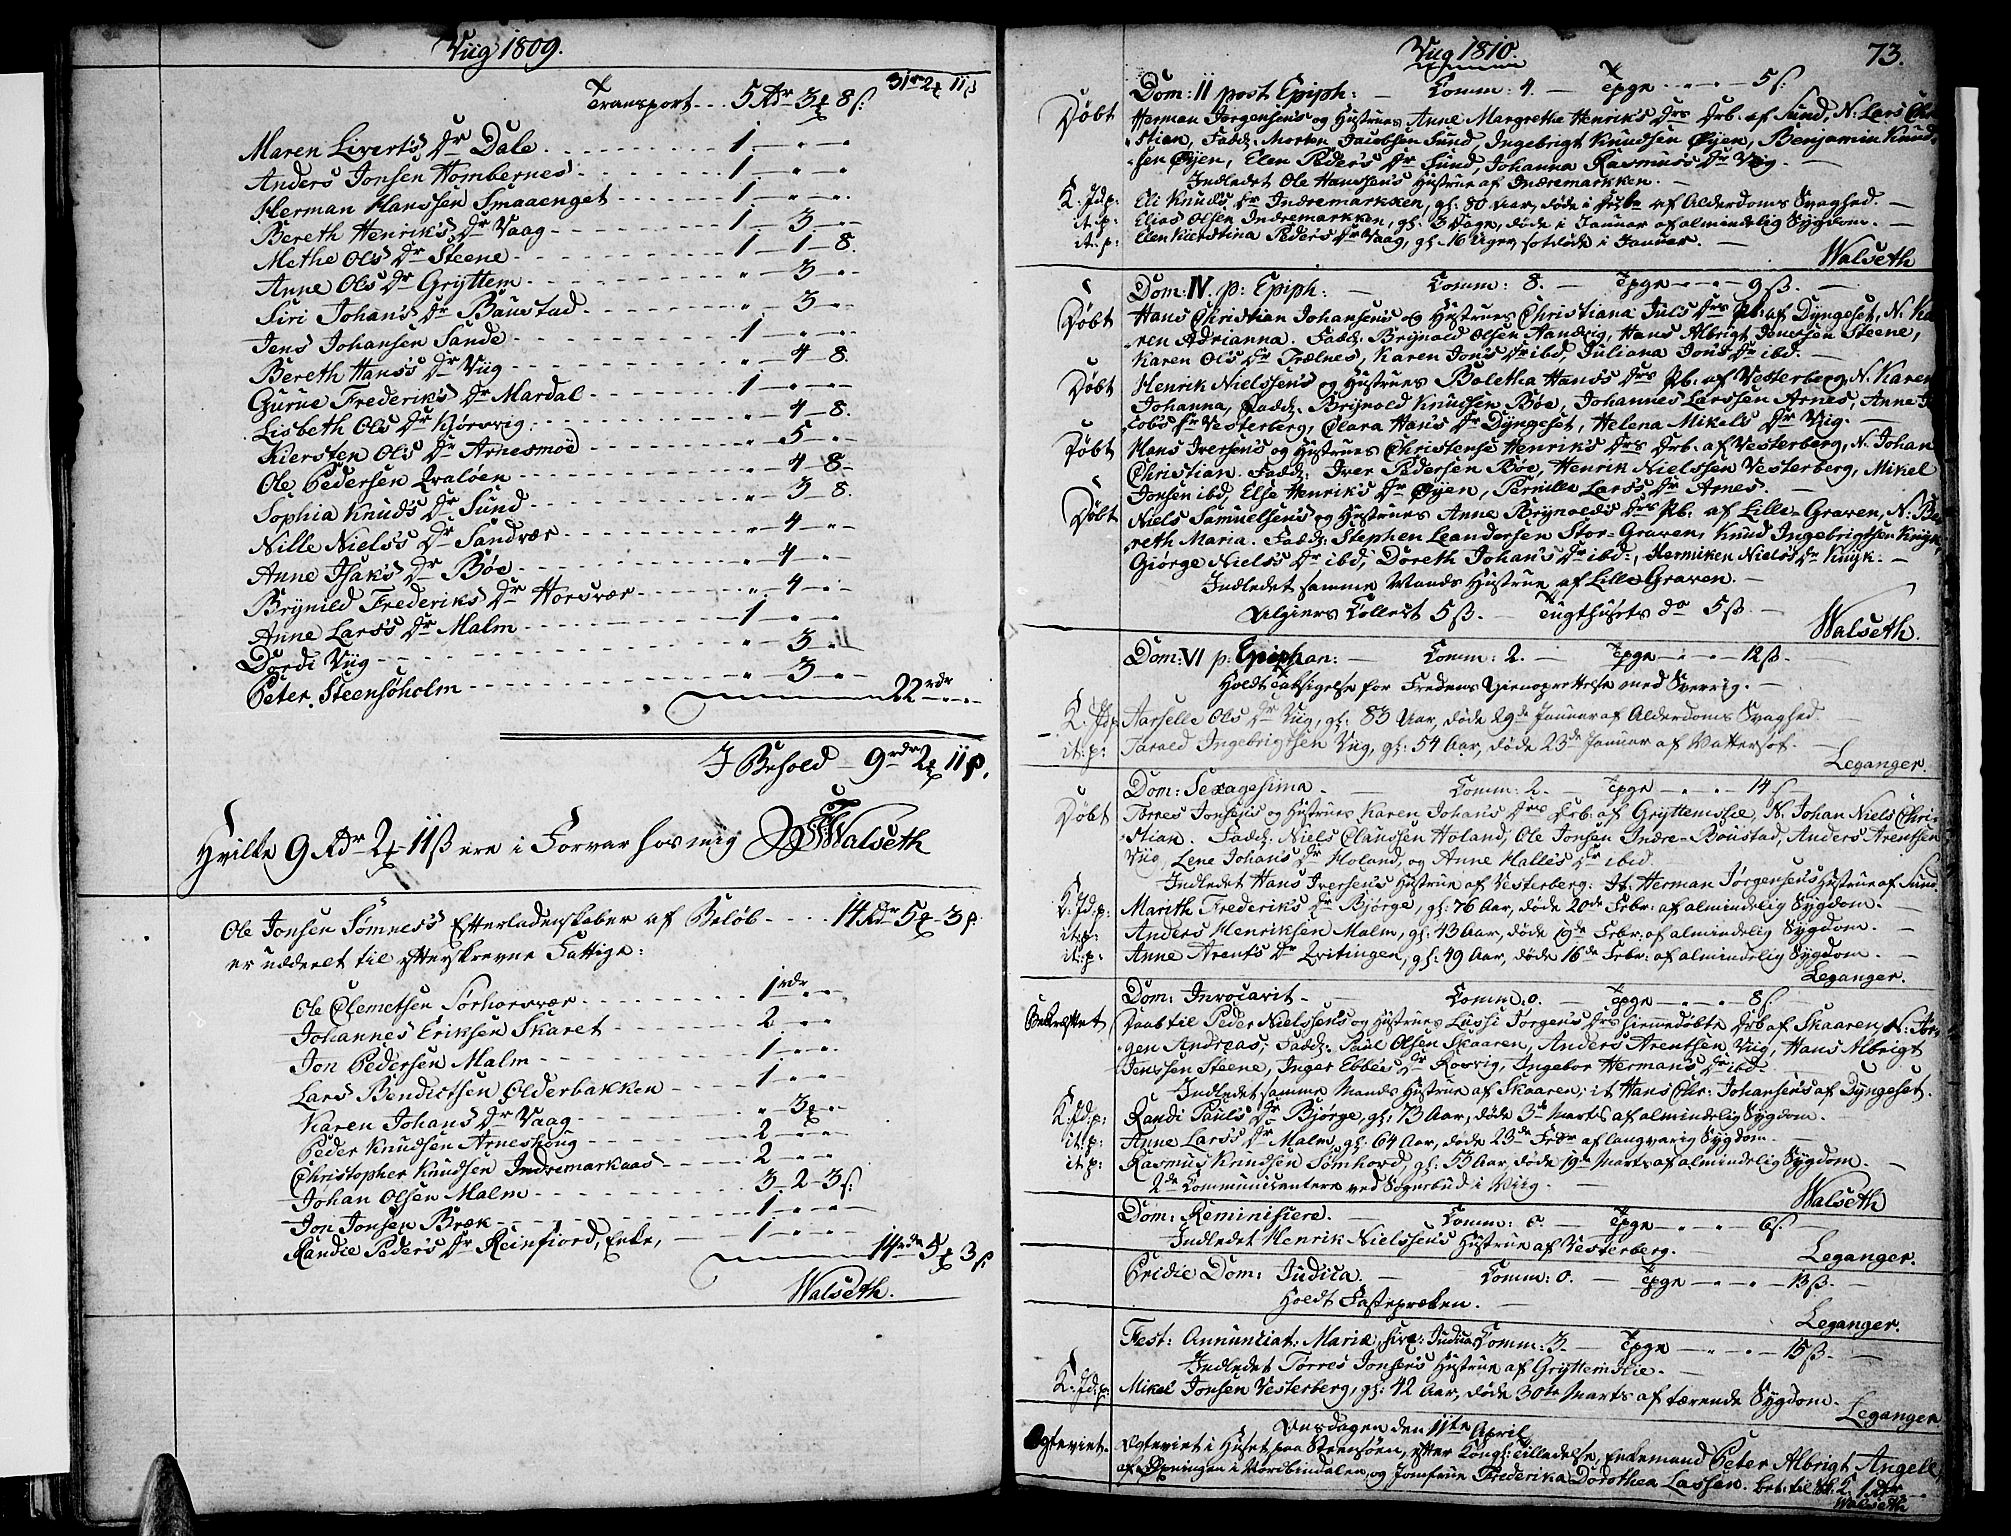 Viig 1809.
31rdr 2 11ß
Transport... 5 Rdr 3 8ß.
Maren Liverts Dr Dale 1 " "
Anders Jonsen Hombernes 1 " "
Herman Hanssen Smaaenget 1 " "
Bereth Henrik's Dr Vaag 1. 3. "
Methe Ols Dr Steene 1 1 - 8.
Anne Ols Dr Gryttem " 3 "
Siri Johan's Dr Baustad " 3 "
Jens Johansen Sande 1 " "
Bereth Hans's Dr Viig " 4 - 8.
Gurue Frederik's Dr Mardal 1 " "
Lisbeth Ols Dr Kjørsvig " 4 - 8.
Kiersten Ols Dr Arnesmoe " 5 "
Ole Pedersen Qvaløen " 4 - 8
Sophia Knud's Dr Sund " 3 - 8.
Nille Niels's Dr Sandvær " 4 "
Anne Isak's Dr Bøe " 4 "
Brynild Frederik's Dr Horsvær " 4 "
Anne Lars's Dr Malm 1 " "
Dordi Viig " 3 "
Peter Steensøholm " 3 "
22 rdr " "
I Behold 9 rdr 2 11ß.
Hvilke 9 Rdr 2 11ß ere i Forvar hos mig Walseth
Ole Jonsen Sømnes's Efterladenskaber af Beløb 14 Rdr 5 3ß.
er uddeelt til efterskrevne Fattige:
Ole Clemetsen Sørhorsvær 1 rdr " "
Johannes Eriksen Skaret 2 " "
Jon Pedersen Malm 1 " "
Lars Bendictsen Olderbakken 1 " "
Karen Johans Dr Vaag " 3 "
Peder Knudsen Arneshoug 2 " "
Christopher Knudsen Indremarkaas 2 " "
Johan Olsen Malm 3 - 2 - 3ß.
Jon Jonsen Bræk 1 " "
Randie Peder's Dr Reinfiord, Enke, 1 " "
14 rdr 5 3ß
Walseth.
Viig 1810.
73.
Dom: II post Epiph: Comm: 4. Tpge 5ß.
Døbt Herman Jørgensen's og Hustrues Anne Margrethe Henrik's Drs Drb. af Sund, N: Lars
stian, Fadd: Morten Jacobsen Sund, Ingebrigt Knudsen Øyen, Benjamin Knud-
sen Øyen, Elen Peder's Dr Sund, Johanna Rasmus's Dr Viig.
Indledet Ole Hanssen's Hustrue af Indremarkken.
K. Jdp: Eli Knud's Dr Indremarkken, gl: 80 Aar, døde i af Alderdoms Svaghed.
it: p: Elias Olsen Indremarkken, gl: 3 Dage, døde i Januar af almindelig Sygdom.
it: p: Elen Kierstina Peder's Dr Vaag, gl: 16 Uger, døde i Januar.
Walseth
Dom: IV. p: Epiph: Comm: 8. Tpge 9ß.
Døbt Hans Christian Johansen's og Hustrues Christiana Juls Drs Pb: af Dyngeset, N. Ka-
ren Adrianna. Fadd: Brynald Olsen Aandvig, Hans Albrigt Jenssen Steene,
Karen Ol's Dr Trælnes, Karen Jon's Dr ibd, Juliana Jon's Dr ibd.
Døbt Henrik Nielssen's og Hustrues Boletha Hans's Drs Pb: af Vesterberg, N. Karen
Johanna, Fadd: Brynold Knudsen Bøe, Johannes Larssen Arnes, Anne Ja-
cobs Dr Vesterberg, Clara Hans's Dr Dyngeset, Helena Mikels Dr Viig.
Døbt Hans Iversen's og Hustrues Christense Henrik's Drs Drb. af Vesterberg, N. Johan
Christian. Fadd: Iver Pedersen Bøe, Henrik Nielssen Vesterberg, Mikel
Jonsen ibd, Else Henrik's Dr Øyen, Pernille Lars's Dr Arnes.
Døbt Niels Samuelsen's og Hustrues Anne Brynalds Drs Pb: af Lille-Graven, N: Be-
reth Maria. Fadd: Stephen Leandersen Stor-Graven, Knud Ingebrigtsen Knyk,
Giørge Niels's Dr ibd, Doreth Johan's Dr ibd:, Hermiken Niels's Dr Knyk.
Indledet samme Mands Hustrue af Lille Graven.
Algiers Collect 5ß. Tugthusets do 5ß.
Walseth.
Dom: VI p: Epiphan: Comm: 2. Tpge 12ß.
Holdt Taksigelse for Fredens Gjenoprettelse med Sverrig.
K. Jdp Aarselle Ols Dr Viig, gl: 83 Aar, døde 29de Januar af Alderdoms Svaghed.
it: p: Tarald Ingebrigtsen Viig, gl: 54 Aar, døde 23de Januar af Vattersot.
Leganger.
Dom: Sexagesima. Comm: 2. Tpge 14ß
Døbt Tørres Jonsen's og Hustrues Karen Johan's Drs Drb. af Gryttemslie, N. Johan Niels Chri-
stian. Fadd: Niels Clausen Holand, Ole Jonsen Indre-Boustad, Anders Arentsen
Viig, Lene Johans Dr Holand, og Anne Halles Dr ibid.
Indledet Hans Iversens Hustrue af Vesterberg. It: Herman Jørgensens Hustrue af Sund.
K. Jdp: Marith Frederik's Dr Bjørge, gl: 76 Aar, døde 20de Febr: af almindelig Sygdom.
it: p: Anders Henriksen Malm, gl: 43 Aar, døde 19de Febr: af almindelig Sygdom.
it: p: Anne Arent's Dr Qvitingen, gl: 49 Aar, døde 16de Febr: af almindelig Sygdom.
Leganger.
Dom: Invocavit. Comm: 0. Tpge 8ß
Bekræftet Daab til Peder Nielssen's og Hustrues Lussi Jørgen's Drs hiemmedøbte Drb. af Skaaren, N: Jør-
gen Andreas, Fadd: Paul Olsen Skaaren, Anders Arentsen Viig, Hans Albrigt
Jenssen Steene, Inger Ebbe's Dr Rørvig, Ingebor Hermans Dr ibd.
Indledet samme Mands Hustrue af Skaaren, it Hans Chr: Johansen's af Dyngeset.
K. Jdp: Randi Paul's Dr Bjørge, gl: 73 Aar, døde 3de Marts af almindelig Sygdom.
it: p: Anne Lars's Dr Malm, gl: 64 Aar, døde 23de Febr af langvarig Sygdom.
it: p: Rasmus Knudsen Sømhord, gl: 53 Aar, døde 19de Marts af almindelig Sygdom.
2de Communicantere ved Sognebud i Viig.
Walseth
Dom: Reminisiere. Comm: 0. Tpge 6ß.
Indledet Henrik Nielssen's Hustrue af Vesterberg.
Leganger.
Pridie Dom: Judica. Comm: 0. Tpge 13ß.
Holdt Fastepræken.
Leganger.
Fest: Annunciat: Mariæ sive: Judica Comm: 3. Tpge 15ß.
Indledet Tørres Jonsen's Hustrue af Gryttemslie.
K. Jdp: Mikel Jonsen Vesterberg, gl: 42 Aar, døde 30te Marts af tærende Sygdom.
Leganger
Onsdagen den 11te April
Ægteviet. Ægteviet i Huset paa Steensøen, efter Kongl: Tilladelse, Enkemand Peter Albrigt Angell
af Opningen i Nordbindalen, og Jomfrue Frederika Dorothea Lassen. bet: til Bl: K. 1 Rdr
Walseth